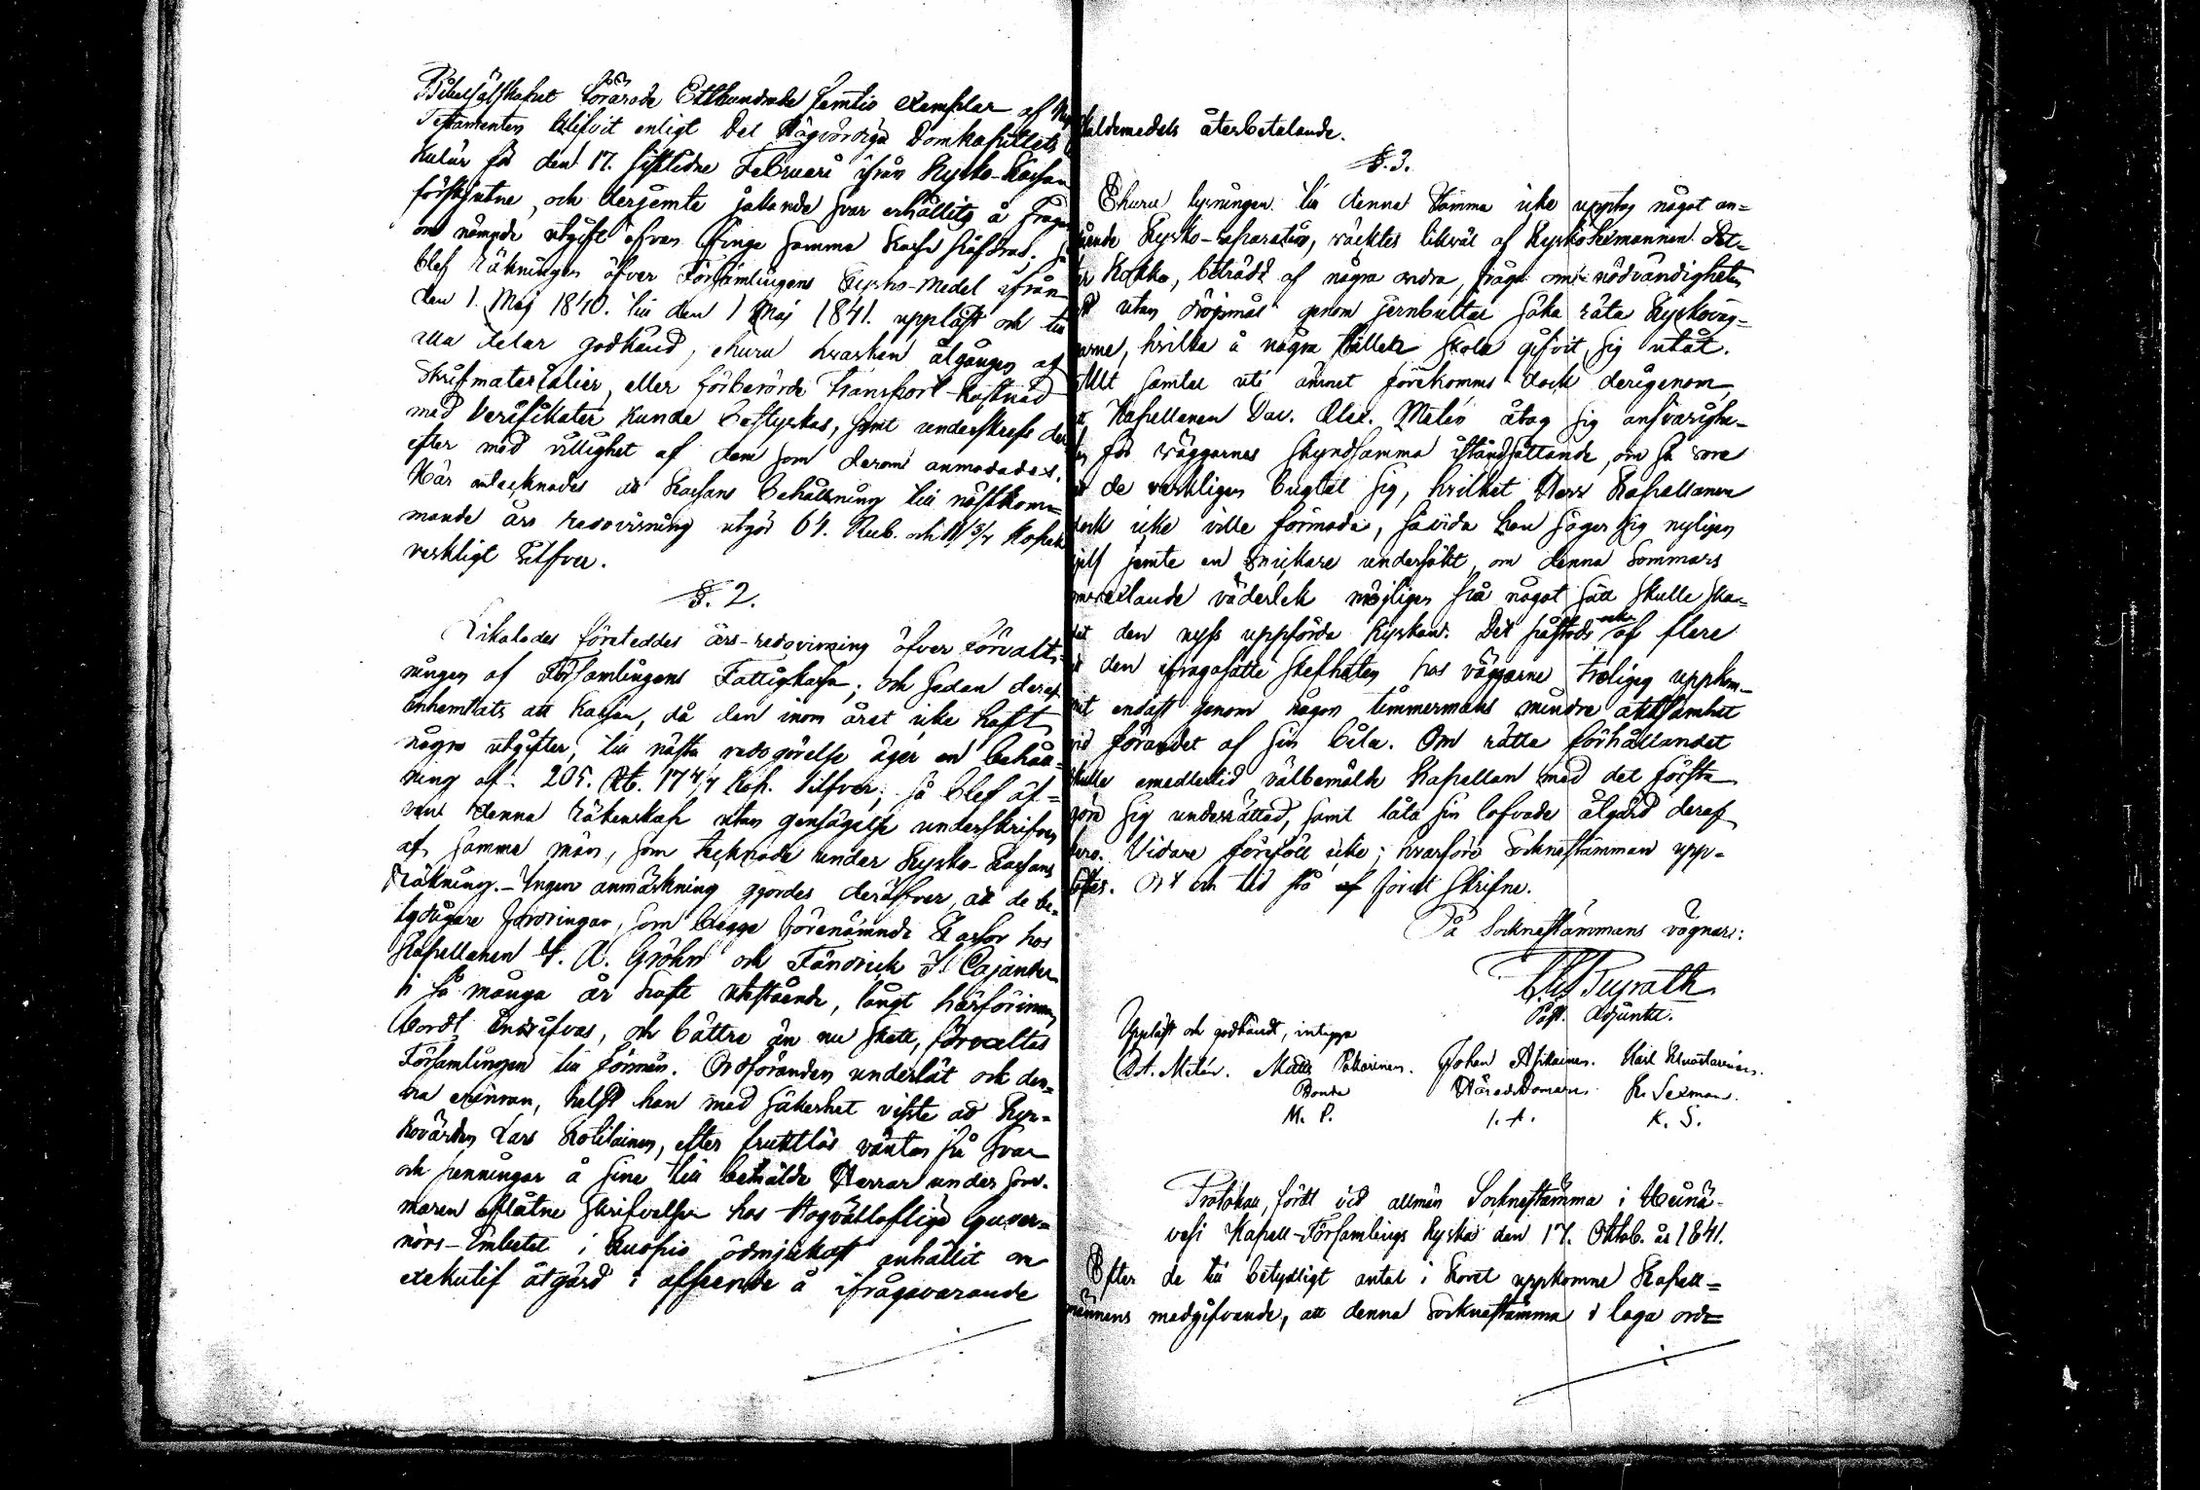 Bibelsälskapet förärade Etthundrade femtio exemplar af
Testamenten blifvit enligt Det Högvördiga Domkapitlets
kulär för den 17. sistlidne Februari ifrån Kyrko-Kassan
förskjutne, och derjemte jakande svar erhållits å frågan
om nämnde utgift ofvan finge samma Kassa påföras; så
blef räkningen öfver Församlingens Kyrko-Medel ifrån
den 1. Maj 1840. till den 1 Maj 1841. uppläst och till
alla delar godkänd, ehuru hvarken åtgången af
Skrifmaterialier, eller förberörde Transport-kostnad
med Verifikater kunde bestyrkas, samt underskrefs der-
efter med villighet af dem som derom anmodades.
Här antecknades att Kassans behållning till nästkom-
mande års redovisning utgör 64. Rub. och 11 3/7 Kopek
verkligt Silfver.
§. 2.
Likaledes företeddes års-redovisning öfver förvalt-
ningen af Församlingens Fattigkassa; och sedan deraf
inhemtats att Kassan, då den inom året icke haft
några utgifter, till nästa redogörelse äger en behåll-
ning af 205. Rb. 17 4/7 Kop. Silfver; så blef äf-
ven denna räkenskap utan gensägelse underskrifven
af samma män, som tecknade under Kyrko-Kassans
Räkning. - Ingen anmärkning gjordes deröfver, att de be-
tydligare fordringar, som begge förenämnde Kassor hos
Kapellanen A. Gröhn och Fändrick J. Cajander
i så många år haft utestående, långt härförinnan
bordt indrifvas, och bättre än nu skett, förvaltas
Församlingen till förmån. Ordföranden underlät ock den-
na erinran, helst han med säkerhet visste att Kyr-
kovärden Lars Kotilainen, efter fruktlös väntan på svar
och penningar å sine till bemälde Herrar under som-
maren aflåtne skrifvelser hos Högvälloflige Guver-
nörs-Embetet i Kuopio ödmjukast anhållit om
exekutif åtgärd i afseende å ifrågavarande
skuldemedels återbetalande.
§. 3.
Ehuru lysningen till denna Stämma icke upptog något an-
gående Kyrko-reparation, väcktes likväl af Kyrko Sexmannen Pet-
ter Kokko, biträdd af några andra, fråga om nödvändigheten
att utan dröjsmål genom jernbultar söka räta Kyrkoväg-
garne, hvilka å några ställen skola gifvit sig utåt.
Allt samtal uti ämnet förekomms dock derigenom,
att Kapellanen Dav. Alex. Melén åtog sig ansvarighe-
ten för väggarnes skyndsamma iståndsättande, om så vore
att de verkligen bugtat sig, hvilket Herr Kapellanen
dock icke ville förmoda, såvida han säger sig nyligen
sjelf jemte en snickare undersökt, om denna Sommars
omvexlande väderlek möjligen på något sätt skulle ska-
dat den nyss uppförde Kyrkan. Det påstods ock af flere
att den ifrågasatte skefheten hos väggarne troligen uppkom-
mit endast genom någon timmermans mindre aktsamhet
vid förandet af sin bila. Om rätta förhållandet
skulle emedlertid välbemälde Kapellan med det första
göra sig underrättad, samt låta sin lofvade åtgärd deraf
bero. Vidare föreföll icke; hvarföre Socknestämman upp-
löstes. Ort och tid på förut skrifne.
På Sockneštämmans vägnar:
Past. Adjunkt.
Uppläst och godkändt, intyga
D. A. Melén. Matts Pakarinen. Johan Asikainen. Karl Kuastarinen.
Bonde Häradsdomare. K. Sexman.
M. P. I. A. K. S.
Protokoll, fördt vid allmän Sockneštämma i Heinä-
vesi Kapell-Församlings Kyrka den 17. Oktob. år 1841.
Efter de till betydligt antal i Koret uppkomne Kapell-
männens medgifvande, att denna Sockneštämma i laga ord-